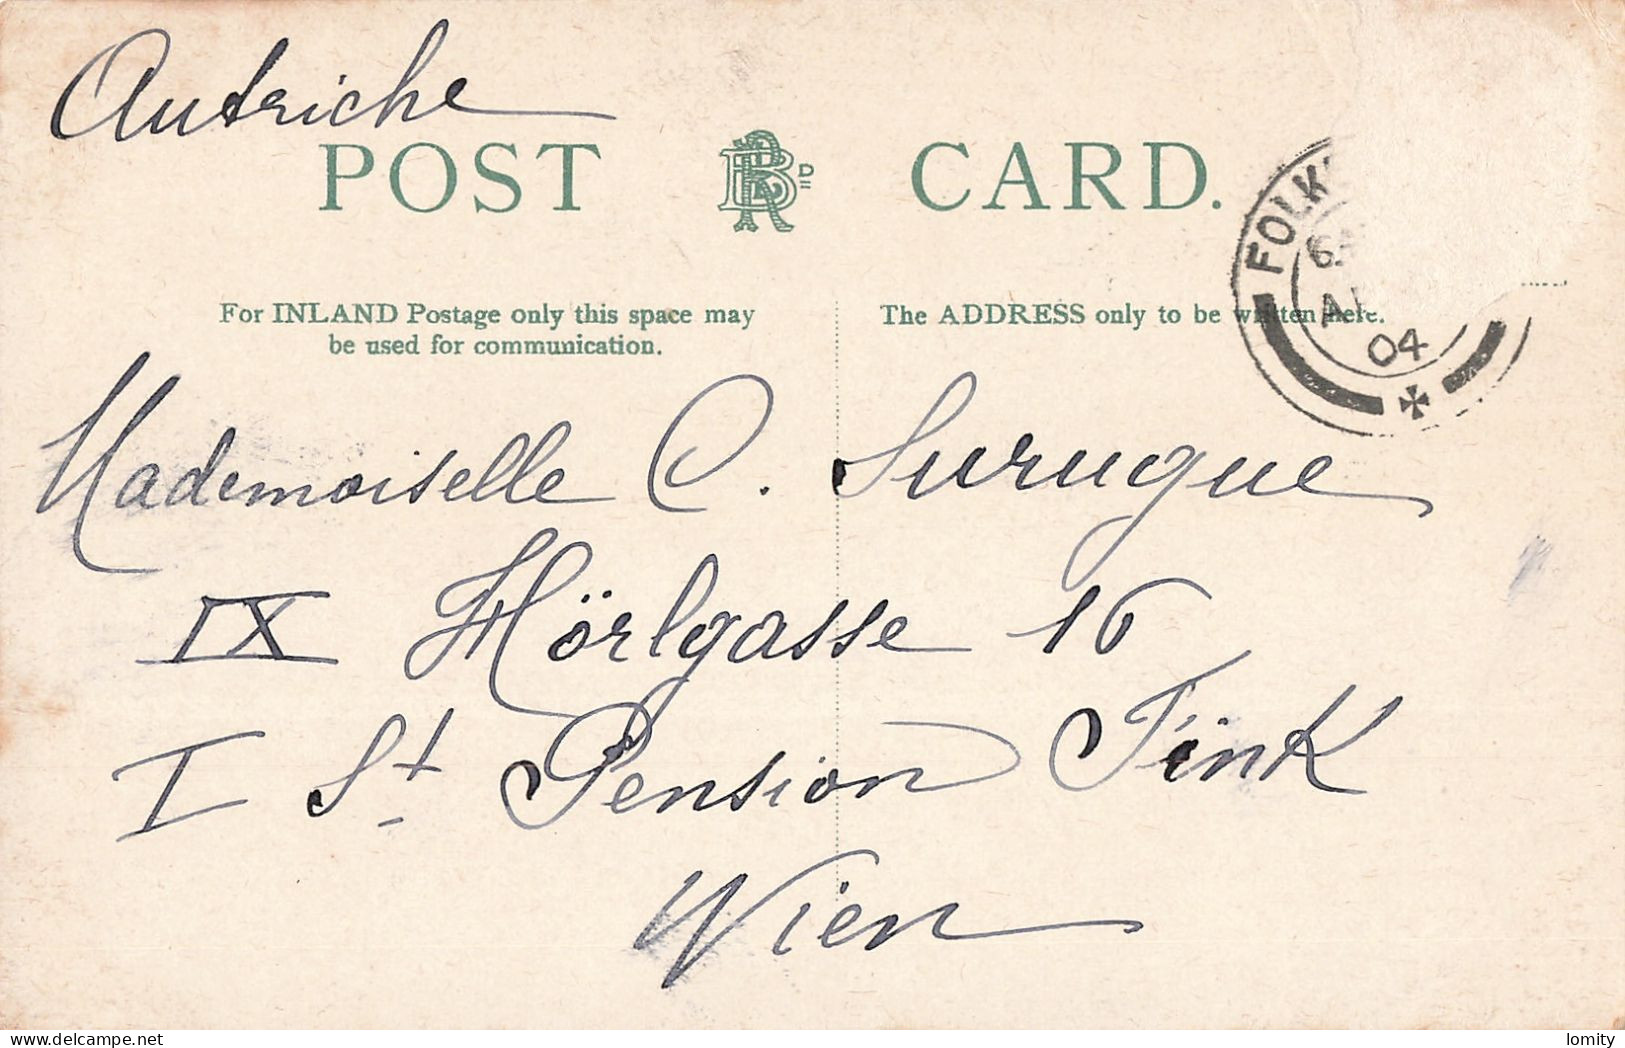 Autriche
POST CARD.
For INLAND Postage only this space may
be used for communication.
The ADDRESS only to be written here.
FOLK
04
Mademoiselle C. Surugue
IX Hörlgasse 16
I St Pension Fink
Wien
delcampe.net
lomity